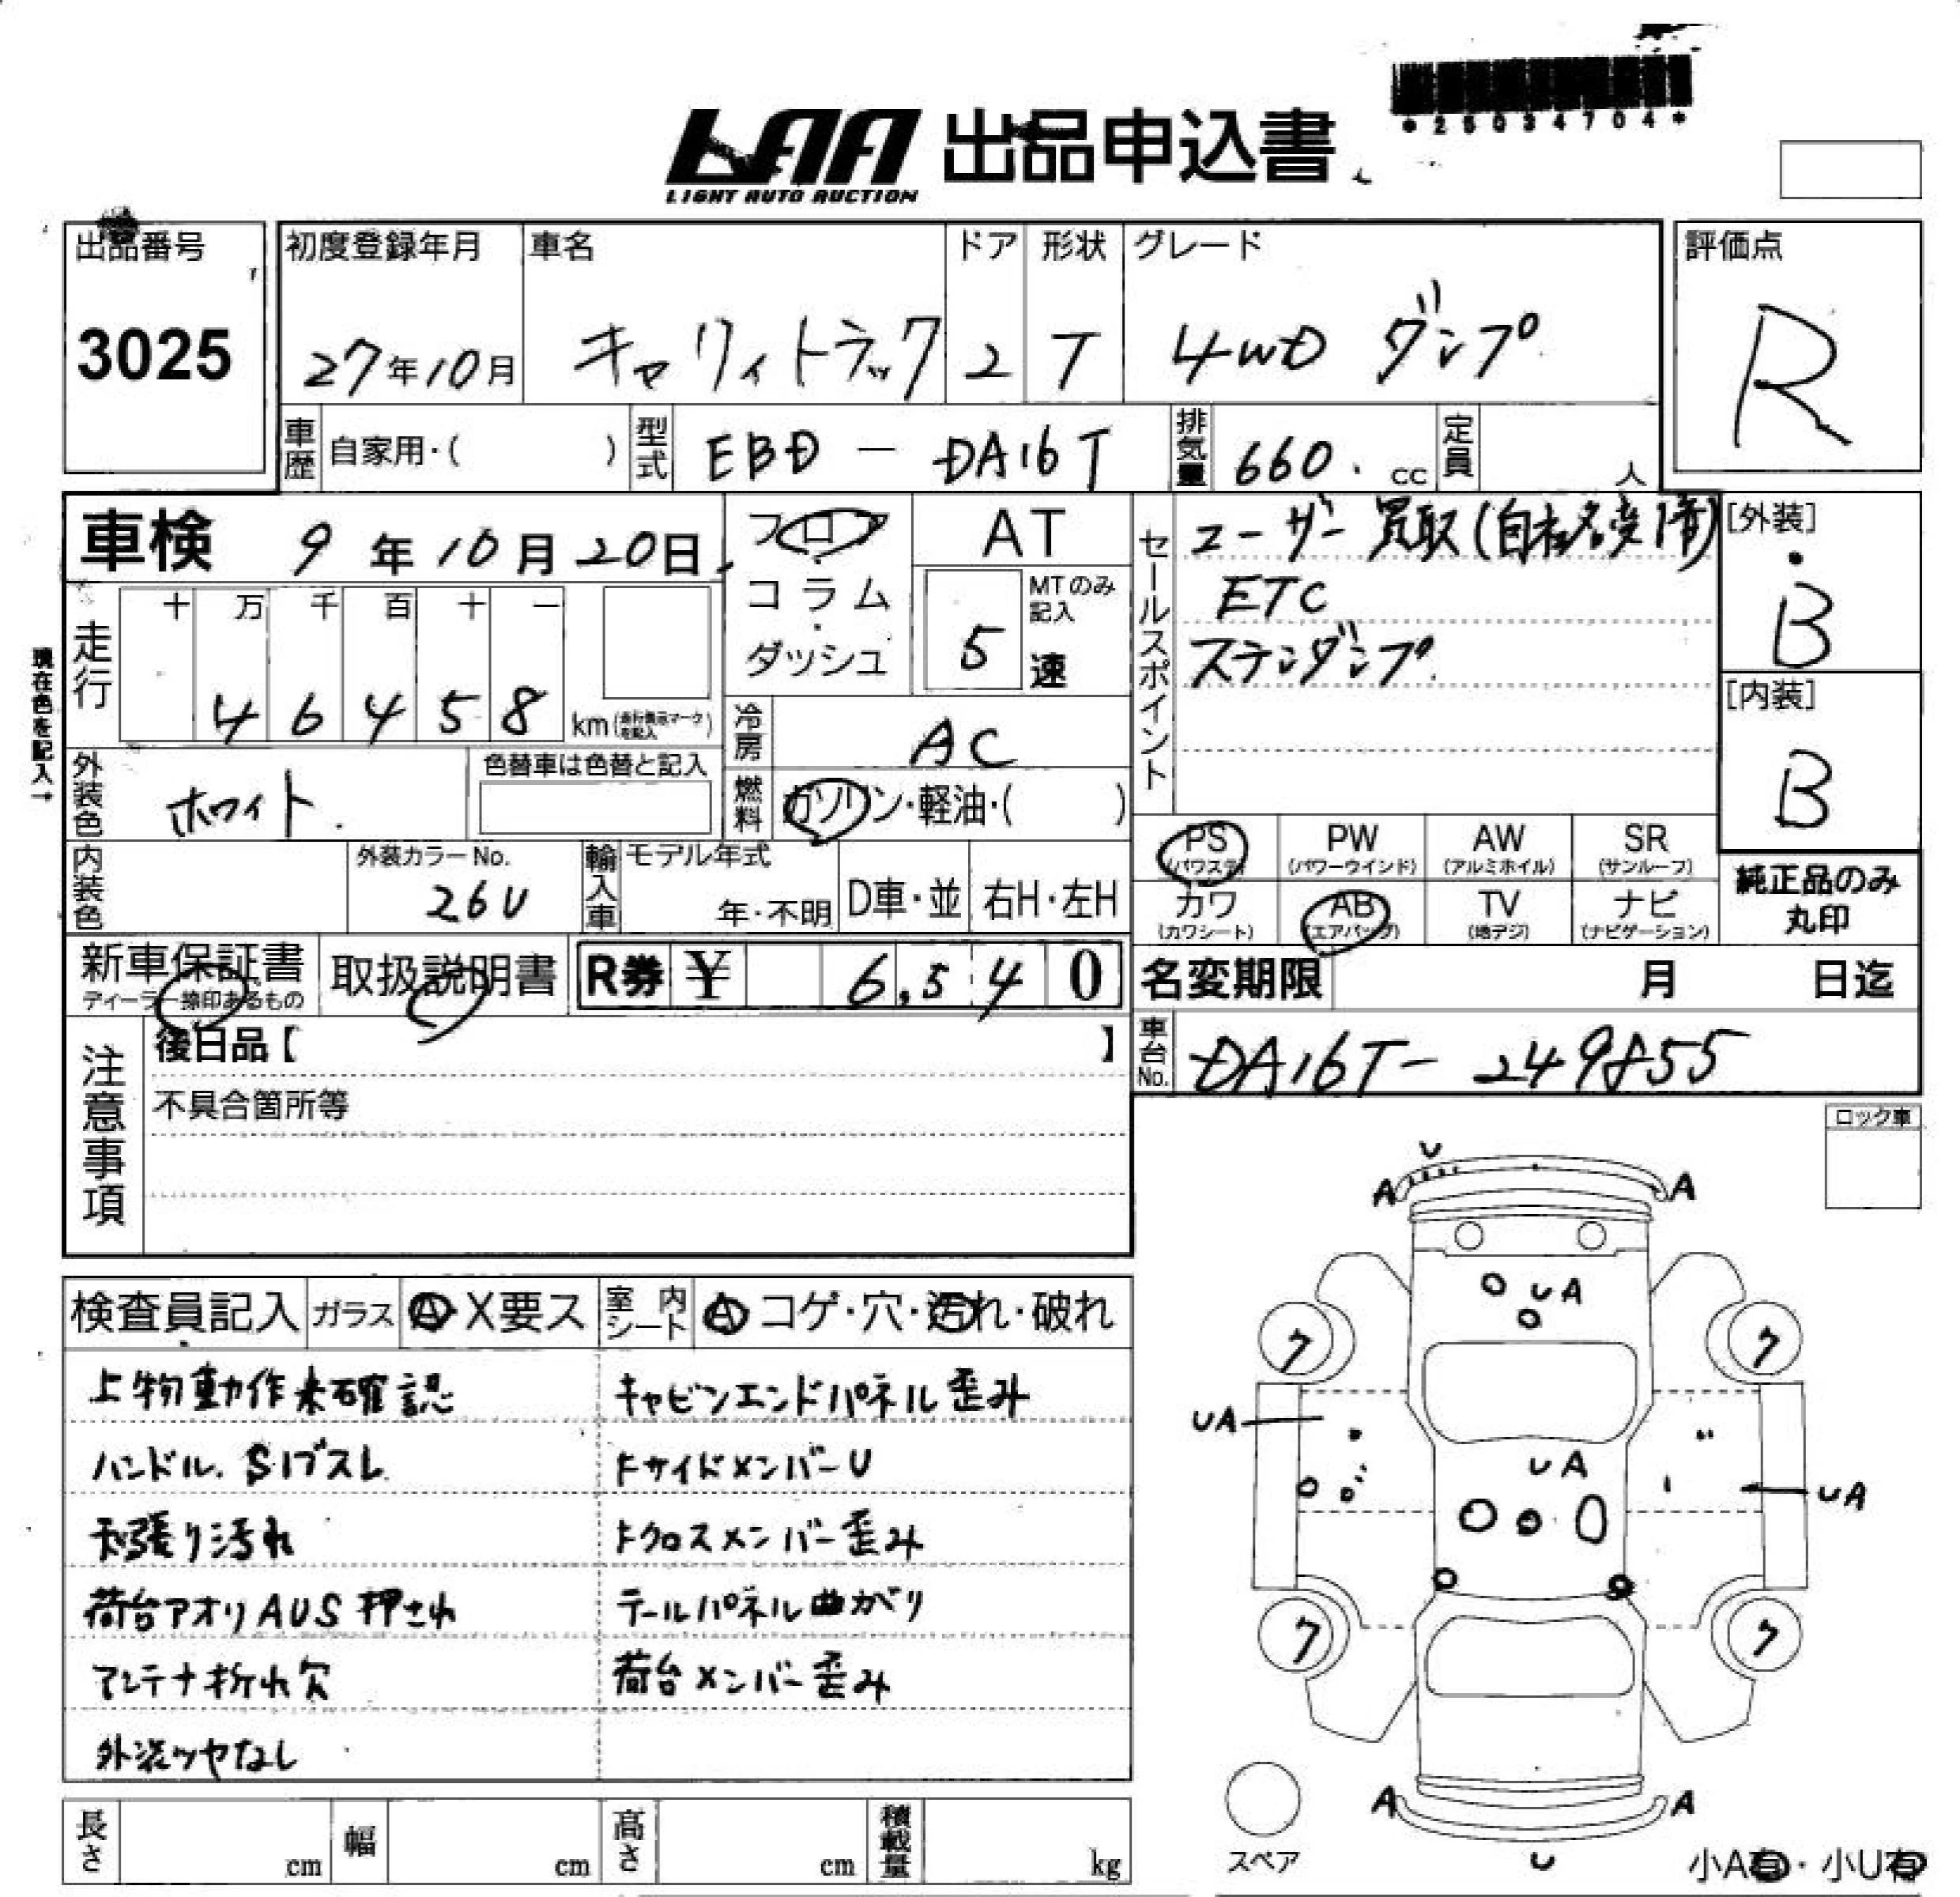 *25034704*
LAA 出品申込書
LIGHT AUTO AUCTION
出品番号
3025
初度登録年月
27年10月
車名
キャリィトラック
ドア
2
形状
T
グレード
4WD ダンプ
評価点
R
車歴
自家用・( )
型式
EBD - DA16T
排気量
660. cc
定員
人
車検 9年10月20日
フロア・コラム・ダッシュ
AT
MTのみ記入
5速
セールスポイント
ユーザー買取(自社名変済)
ETC
ステンダンプ
[外装]
B
[内装]
B
現在色を記入→
走行
十 万 千 百 十 一
4 6 4 5 8 km(走行表示マークを記入)
冷房
AC
外装色
ホワイト.
色替車は色替と記入
燃料
ガソリン・軽油・( )
PS (パワステ)
PW (パワーウインド)
AW (アルミホイル)
SR (サンルーフ)
カワ (カワシート)
AB (エアバッグ)
TV (地デジ)
ナビ (ナビゲーション)
純正品のみ
丸印
内装色
外装カラーNo.
26U
輸入車
モデル年式
年・不明
D車・並
右H・左H
新車保証書
ディーラー捺印あるもの
取扱説明書
R券 ¥ 6,540
名変期限 月 日迄
車台No.
DA16T-249855
注意事項
後日品【 】
不具合箇所等
ロック車
検査員記入
ガラス
A・X要ス
室内シート
A コゲ・穴・汚れ・破れ
上物動作未確認
キャビンエンドパネル歪み
ハンドル.Sノブスレ
FサイドメンバーU
天張り汚れ
Fクロスメンバー歪み
荷台アオリAUS押され
テールパネル曲がり
アンテナ折れ欠
荷台メンバー歪み
外装ツヤなし
U
A A
UA
ワ ワ
UA
UA
UA
ワ ワ
A A
U
スペア
小A有・小U有
長さ cm
幅 cm
高さ cm
積載量 kg